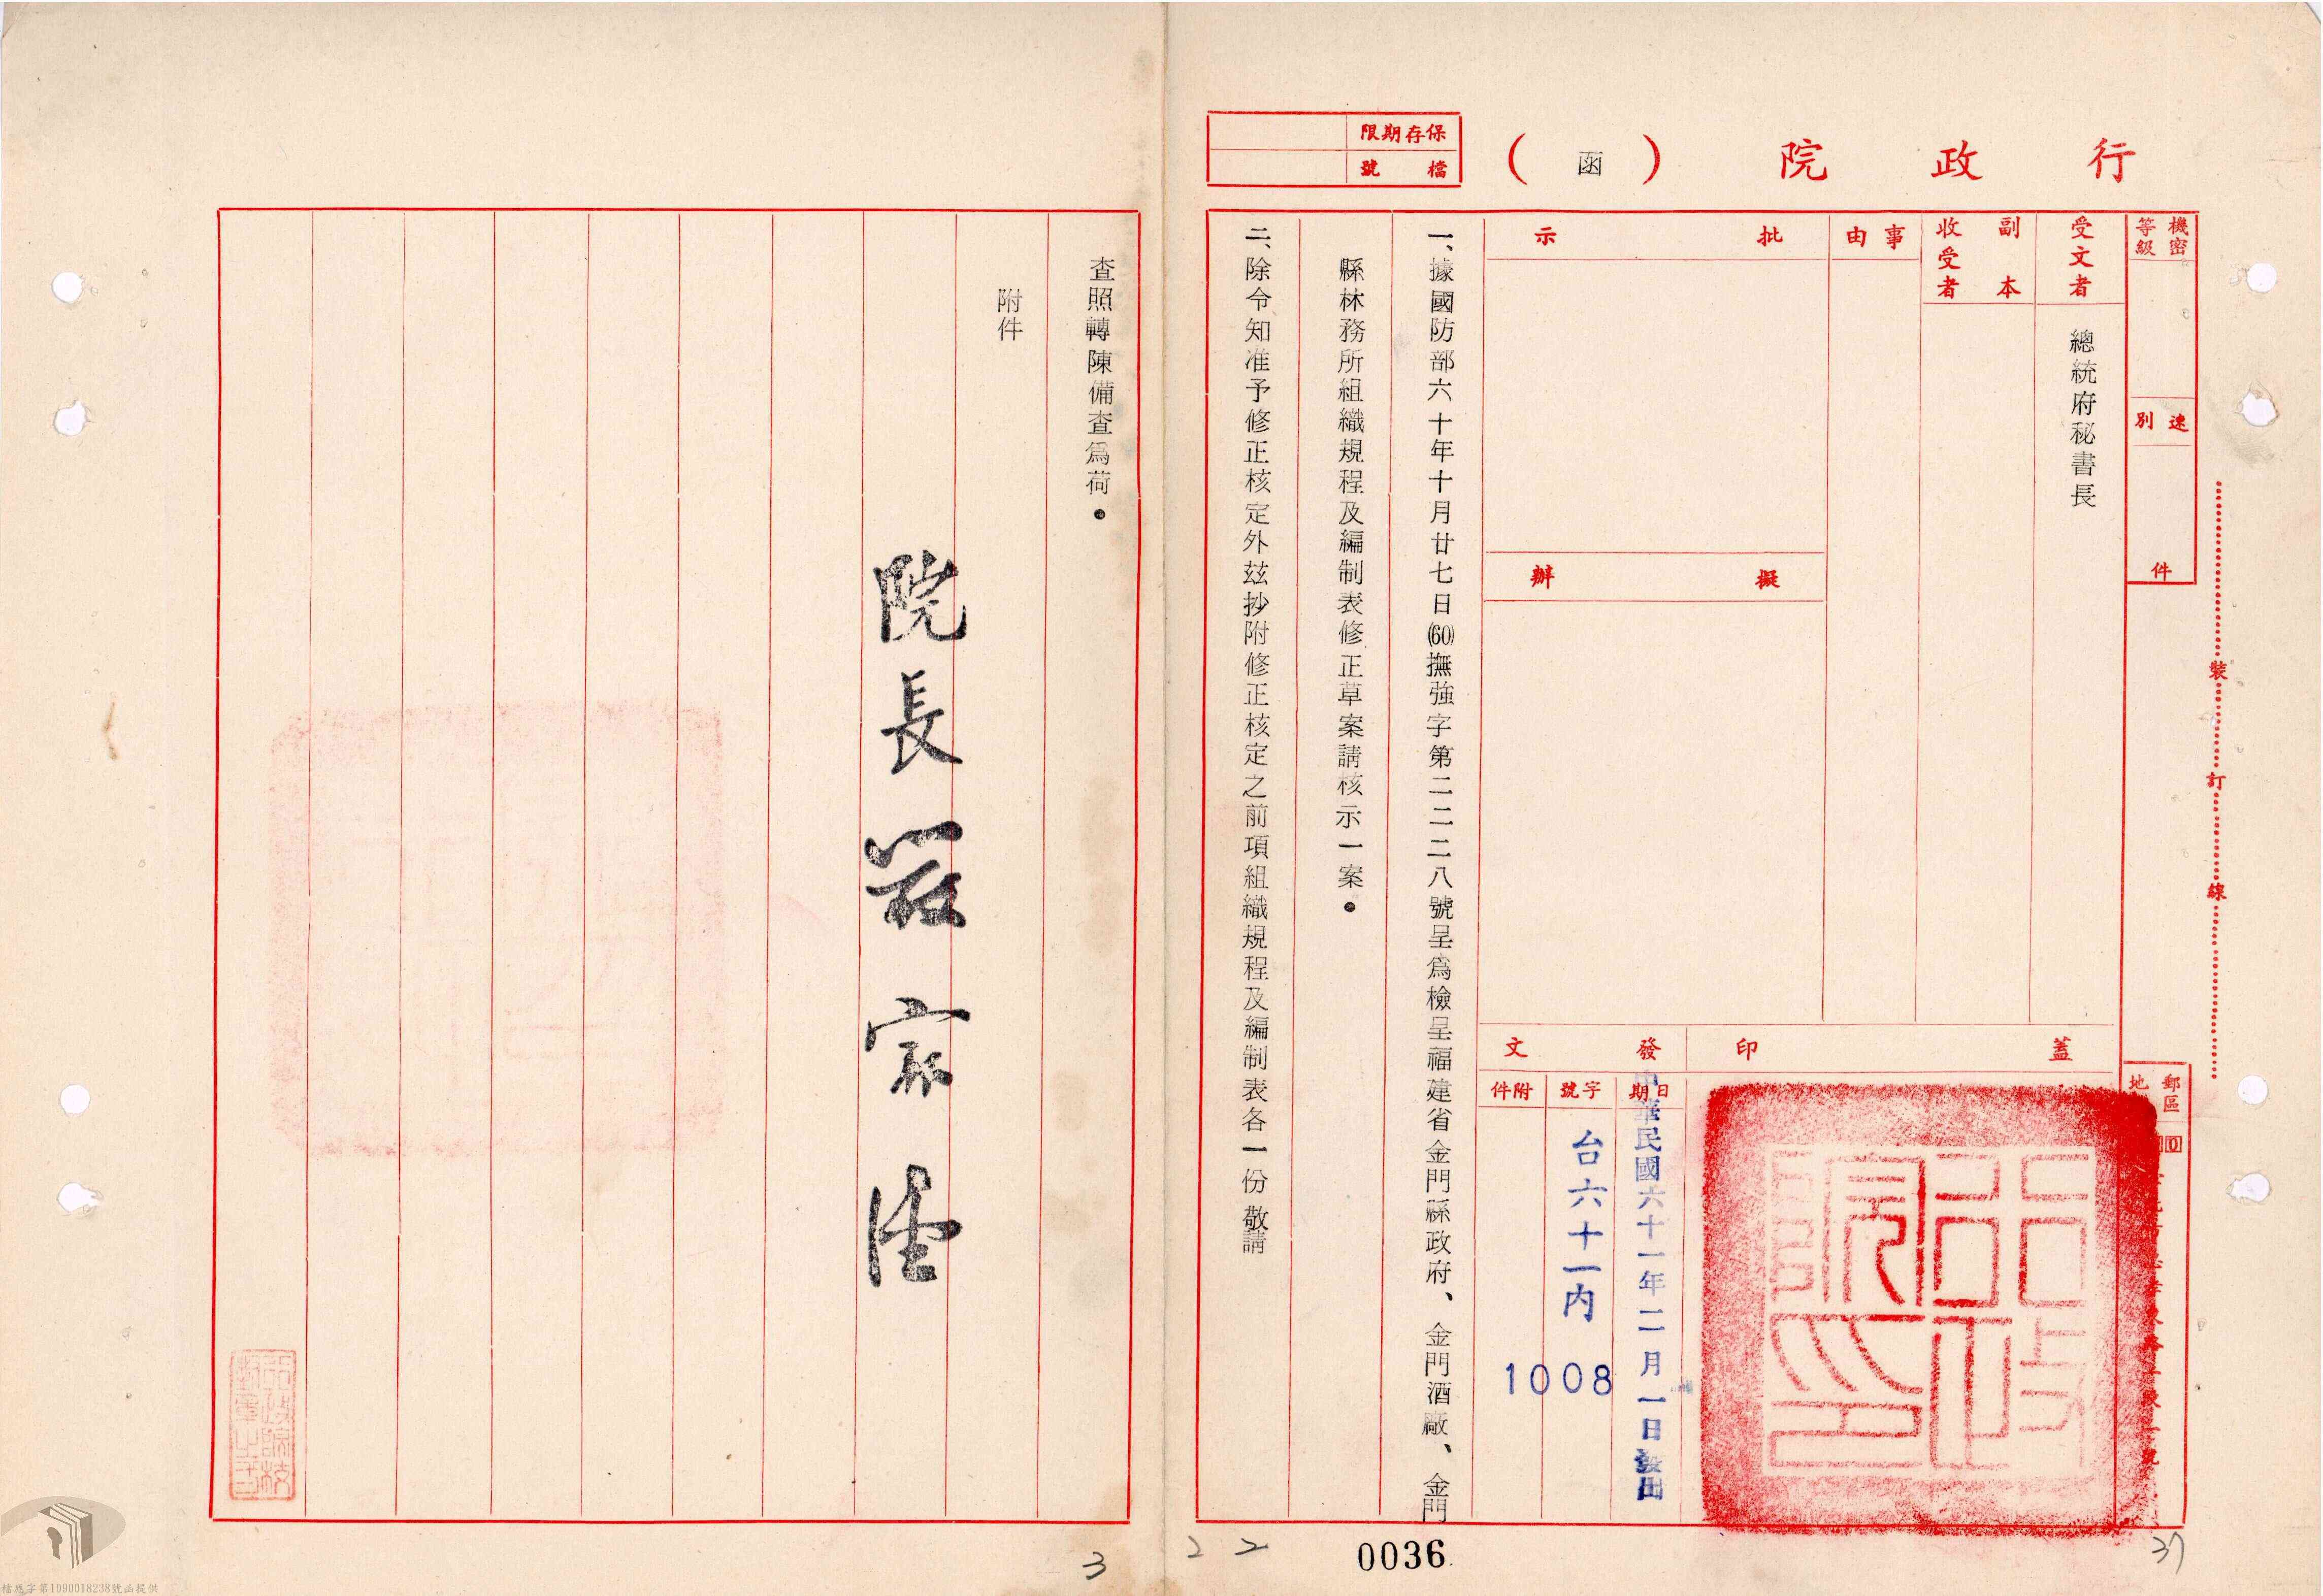 行政院（函）
保存期限
檔號
機密等級
速別
件
受文者
總統府秘書長
副本收受者
事由
批示
擬辦
蓋印
發文
日期
中華民國六十一年二月一日發出
字號
台六十一內
1008
附件
郵區
地
裝訂線
一、據國防部六十年十月廿七日(60)撫強字第二二二八號呈爲檢呈福建省金門縣政府、金門酒廠、金門
縣林務所組織規程及編制表修正草案請核示一案。
二、除令知准予修正核定外茲抄附修正核定之前項組織規程及編制表各一份敬請
查照轉陳備查爲荷。
附件
院長嚴家淦
行政院印
0036
37
22
3
檔應字第1090018238號函提供